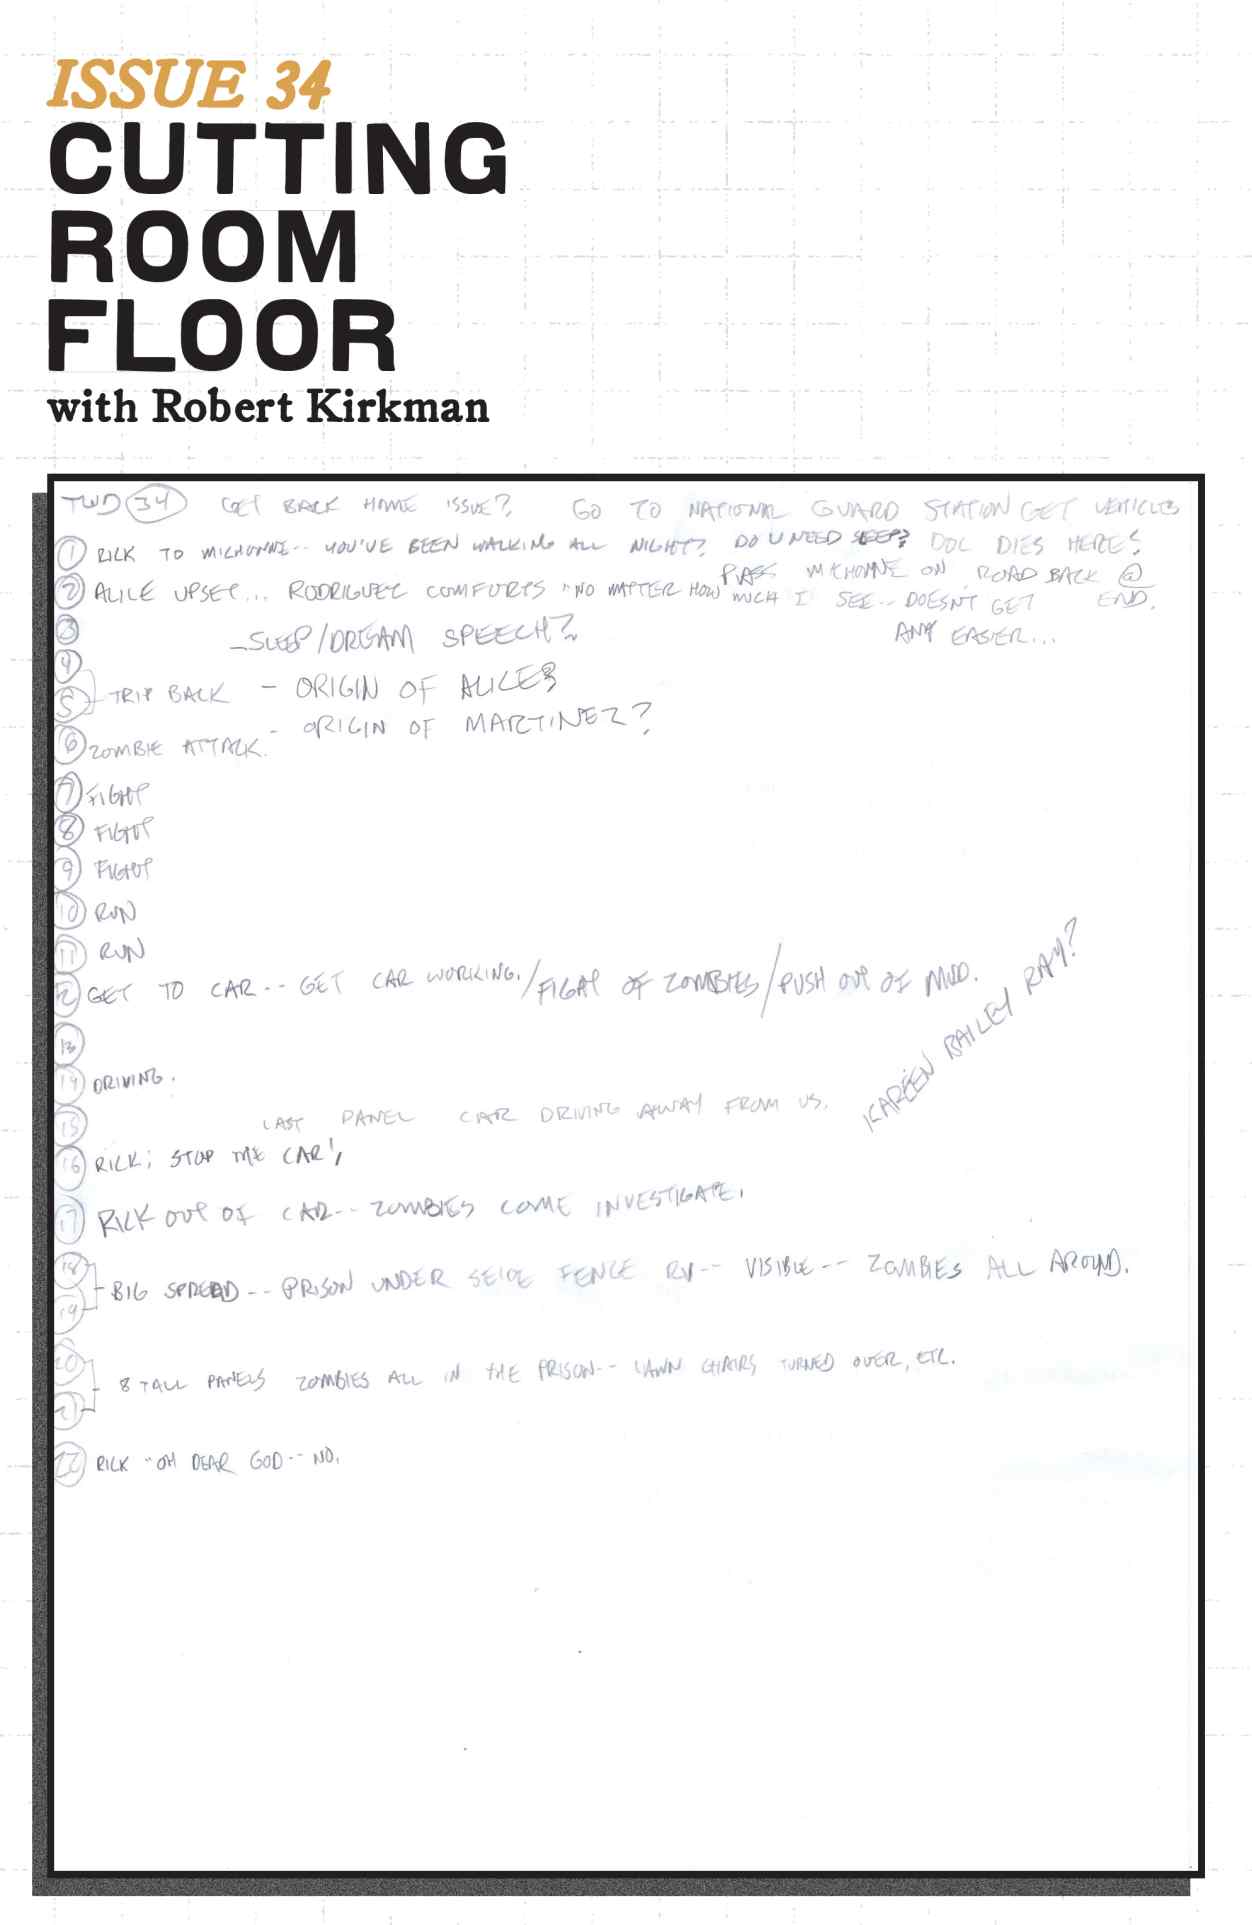 ISSUE 34
CUTTING
ROOM
FLOOR
with Robert Kirkman
TWD 34 GET BACK HOME ISSUE? GO TO NATIONAL GUARD STATION GET VEHICLES
1 RICK TO MICHONNE-- YOU'VE BEEN WALKING ALL NIGHT? DO U NEED SLEEP? DOC DIES HERE?
PASS MICHONNE ON ROAD BACK @ END.
2 ALICE UPSET... RODRIGUEZ COMFORTS "NO MATTER HOW MUCH I SEE-- DOESN'T GET
ANY EASIER...
3 - SLEEP/DREAM SPEECH?
4
5 TRIP BACK - ORIGIN OF ALICE?
- ORIGIN OF MARTINEZ?
6 ZOMBIE ATTACK.
7 FIGHT
8 FIGHT
9 FIGHT
10 RUN
11 RUN
12 GET TO CAR-- GET CAR WORKING./FIGHT OF ZOMBIES/PUSH OUT OF MUD.
KAREEN BAILEY RAY?
13
14 DRIVING.
15 LAST PANEL CAR DRIVING AWAY FROM US.
16 RICK; STOP THE CAR!
17 RICK OUT OF CAR-- ZOMBIES COME INVESTIGATE.
18
19 BIG SPREAD-- PRISON UNDER SEIGE FENCE RV-- VISIBLE-- ZOMBIES ALL AROUND.
20
21 8 TALL PANELS ZOMBIES ALL IN THE PRISON-- LAWN CHAIRS TURNED OVER, ETC.
22 RICK "OH DEAR GOD-- NO.